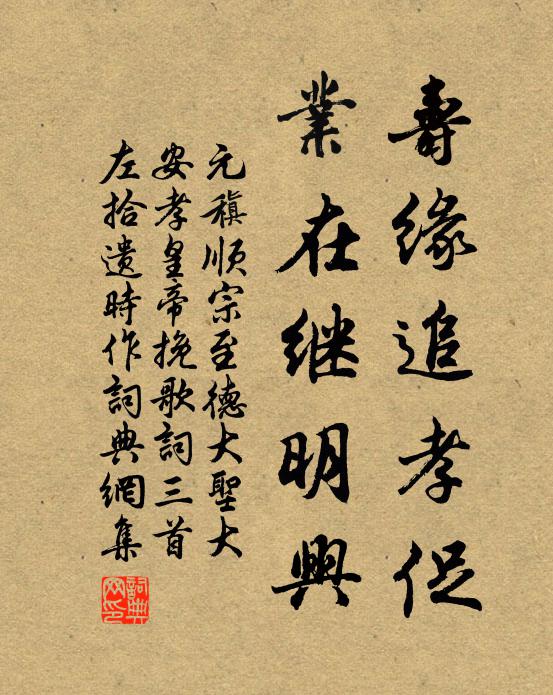 壽緣追孝促
業在继明興
元稹順宗至德大聖大
安孝皇帝挽歌詞三首
左拾遺時作詞典網集
詞典网印